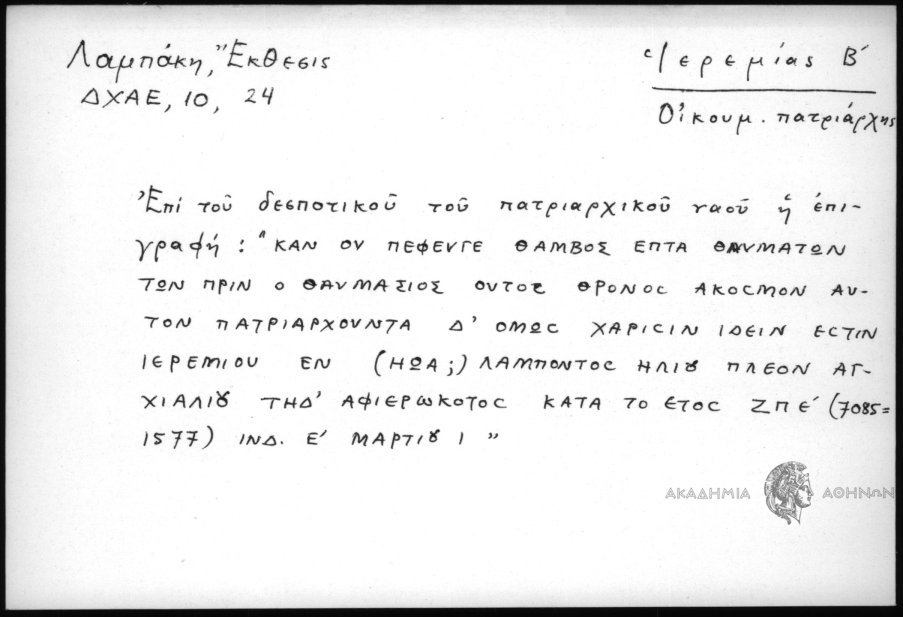 Λαμπάκη, Ἔκθεσις
ΔΧΑΕ, 10, 24
Ἱερεμίας Β΄
Οἰκουμ. πατριάρχης
Ἐπί τοῦ δεσποτικοῦ τοῦ πατριαρχικοῦ ναοῦ ἡ ἐπι-
γραφή: "ΚΑΝ ΟΥ ΠΕΦΕΥΓΕ ΘΑΜΒΟΣ ΕΠΤΑ ΘΑΥΜΑΤΩΝ
ΤΩΝ ΠΡΙΝ Ο ΘΑΥΜΑΣΙΟΣ ΟΥΤΟΣ ΘΡΟΝΟΣ ΑΚΟΣΜΟΝ ΑΥ-
ΤΟΝ ΠΑΤΡΙΑΡΧΟΥΝΤΑ Δ' ΟΜΩΣ ΧΑΡΙΣΙΝ ΙΔΕΙΝ ΕΣΤΙΝ
ΙΕΡΕΜΙΟΥ ΕΝ (ΗΩΑ;) ΛΑΜΠΟΝΤΟΣ ΗΛΙȢ ΠΛΕΟΝ ΑΓ-
ΧΙΑΛΙȢ ΤΗΔ' ΑΦΙΕΡΩΚΟΤΟΣ ΚΑΤΑ ΤΟ ΕΤΟΣ ΖΠΕ΄ (7085=
1577) ΙΝΔ. Ε΄ ΜΑΡΤΙȢ Ι"
ΑΚΑΔΗΜΙΑ ΑΘΗΝΩΝ